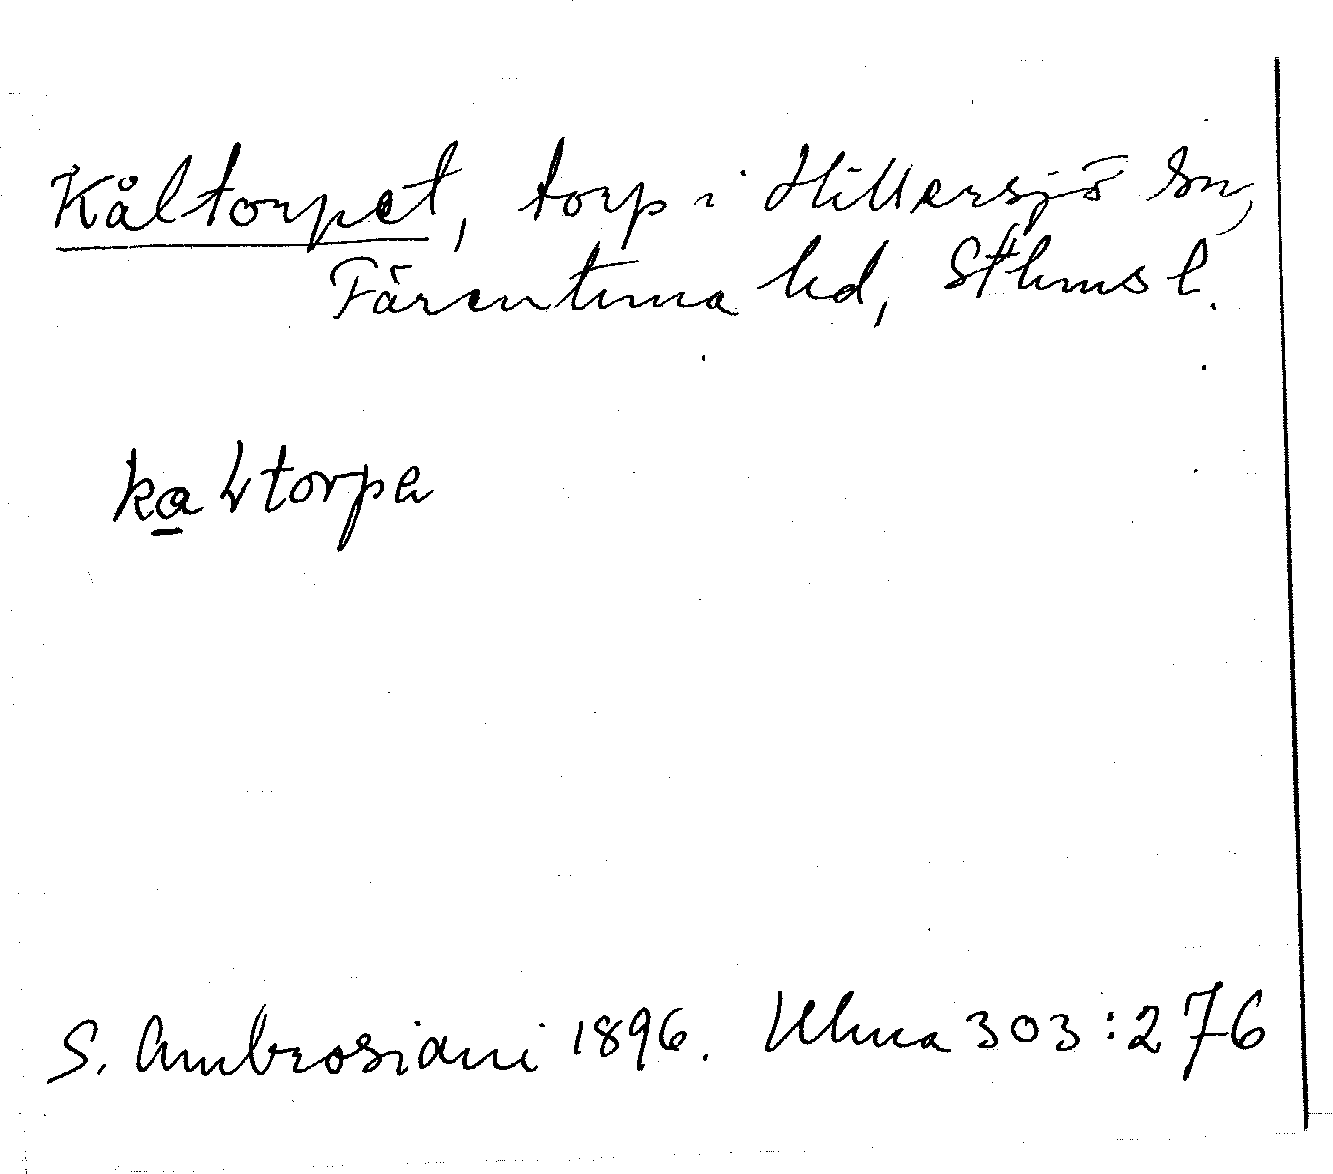 Kåltorpet, torp i Hillersjö sn,
Färentuna hd, Sthms l.
S. Ambrosiani 1896. Ulma 303:276